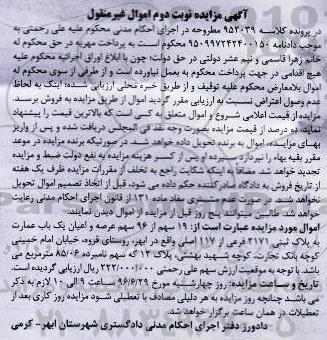 آگهی مزایده نوبت دوم اموال غیرمنقول
در پرونده کلاسه ۹۵۲۰۳۹ مطروحه در اجرای احکام مدنی محکوم علیه علی رحمتی به
موجب دادنامه ۹۵۰۹۹۷۲۴۲۴۰۰۱۵۰ محکوم است به پرداخت مهریه در حق محکوم له
خانم زهرا قاسمی و نیم عشر دولتی در حق دولت؛ چون با ابلاغ اوراق اجرائیه محکوم علیه
هیچ اقدامی در جهت پرداخت محکوم به بعمل نیاورده است و از طرفی از سوی محکوم له
اموال بلامعارض محکوم علیه توقیف و از طریق خبره محلی ارزیابی شده، اینک به لحاظ
عدم وصول اعتراض نسبت به ارزیابی مقرر گردید اموال از طریق مزایده به فروش برسد.
مزایده از قیمت اعلامی شروع و اموال متعلق به کسی است که بالاترین قیمت را پیشنهاد
نماید، ده درصد از قیمت مزایده بصورت وجه نقد فی المجلس دریافت شده و پس از واریز
بهای مزایده، اموال به برنده تحویل داده خواهد شد. در صورتیکه برنده مزایده در موعد
مقرر بقیه بهاء را نپردازد، سپرده او پس از کسر هزینه مزایده به نفع دولت ضبط و مزایده
تجدید خواهد شد. مضافا به اینکه شکایت راجع به تخلف از مقررات مزایده ظرف یک هفته
از تاریخ فروش به دادگاه صادر کننده حکم داده می شود، قبل از اتخاذ تصمیم اموال تحویل
نخواهد شد. در صورت عدم مشتری مفاد ماده ۱۳۱ از قانون اجرای احکام مدنی رعایت
خواهد شد. طالبین میتوانند پنج روز قبل از مزایده از اموال دیدن نمایند.
اموال مورد مزایده عبارت است از: ۱۹ سهم از ۹۶ سهم عرصه و اعیان یک باب عمارت
به پلاک ثبتی ۲۱۷۱ فرعی از ۱۱۷ اصلی واقع در ابهر، روستای قروه، خیابان امام خمینی
کوچه بانک تجارت، کوچه شهید بهشتی، پلاک ۱۴ که سهم نامبرده ۸۵/۰۶ مترمربع می
باشد. با توجه به موقعیت ارزش سهم علی رحمتی ۲۲۲/۰۰۰/۰۰۰ ریال ارزیابی گردیده است.
تاریخ و ساعت مزایده: روز چهارشنبه مورخ ۹۶/۶/۲۹ ساعت ۹ الی ۱۰ لازم به ذکر
می باشد چنانچه روز مزایده به هر دلیلی مصادف با تعطیلی شود مزایده روز کاری بعد از
تعطیلات در همان ساعت برگزار خواهد شد.
دادورز دفتر اجرای احکام مدنی دادگستری شهرستان ابهر- کرمی